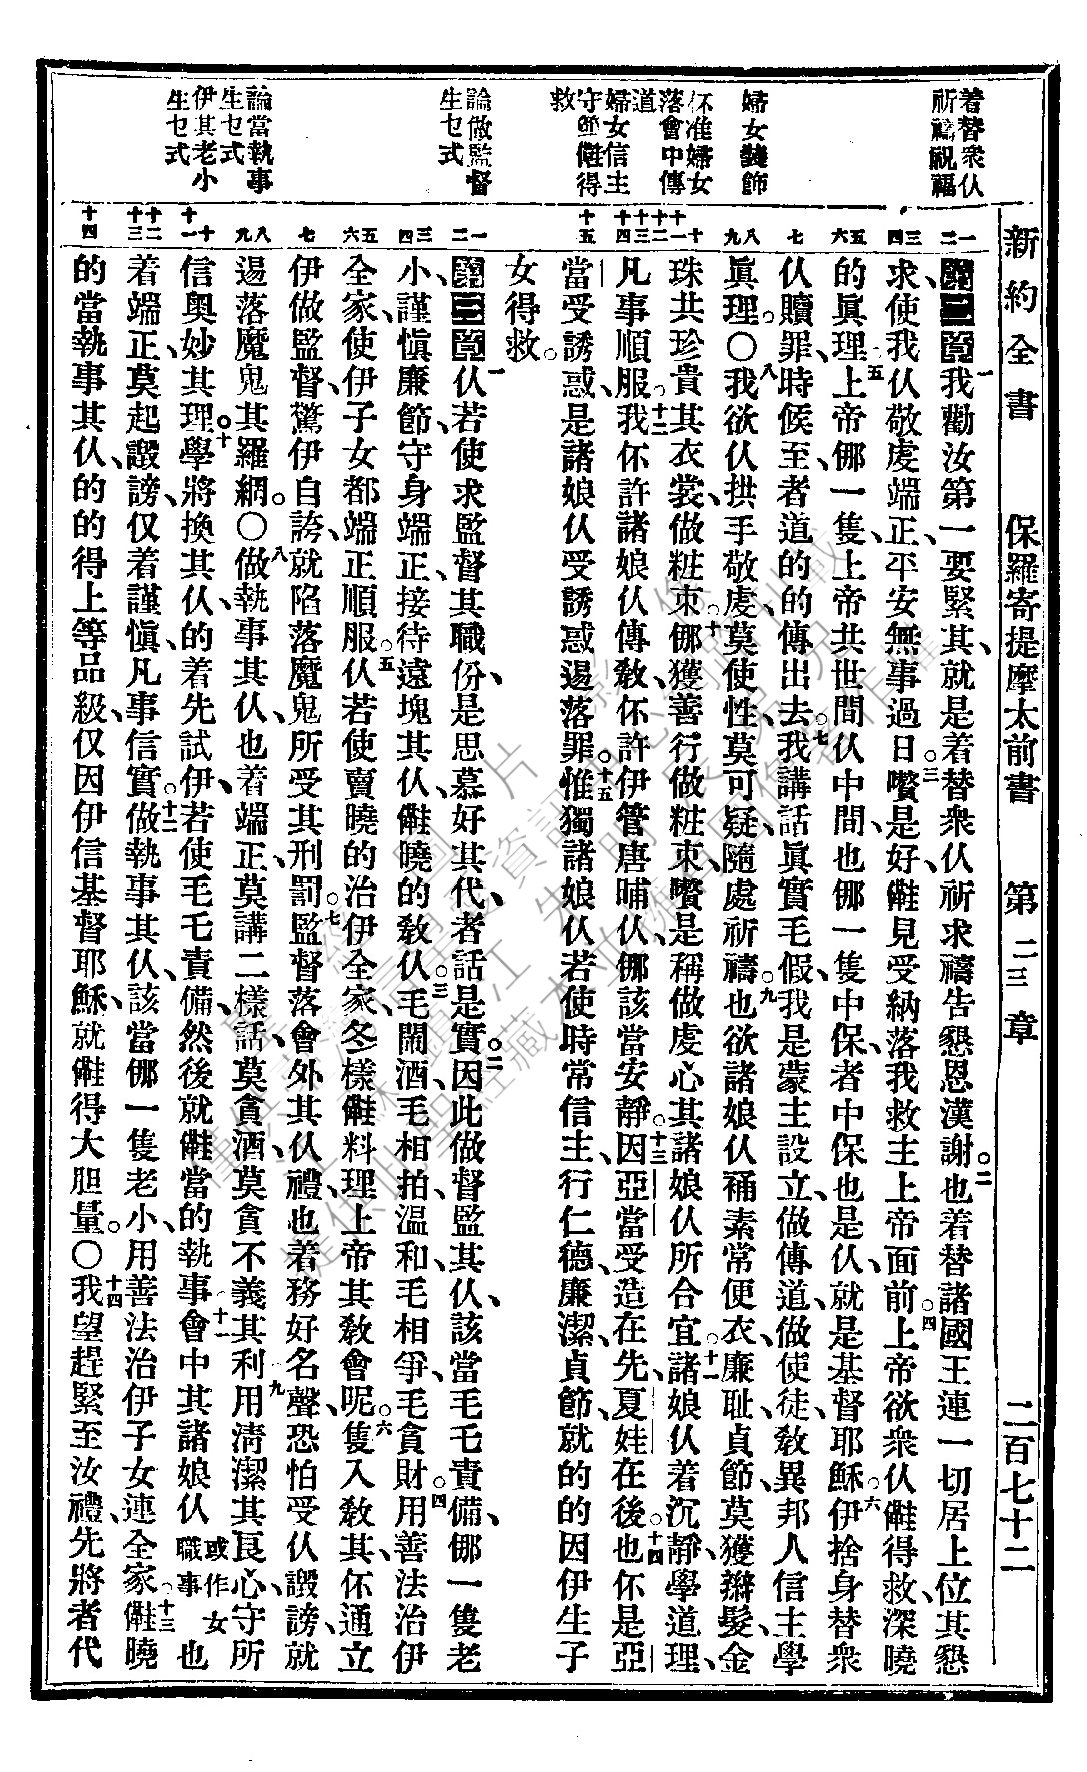 新約全書 保羅寄提摩太前書 第二三章 二百七十二
着替衆仫
祈禱祝福
婦女裝飾
伓准婦女
落會中傳
道
婦女信主
守節㑚得
救
論做監督
生乜式
論當執事
生乜式
伊其老小
生乜式
第二章一我勸汝第一要緊其、就是着替衆仫祈求禱告懇恩漢謝。二也着替諸國王連一切居上位其懇
求、使我仫敬虔端正、平安無事過日。三嚽是好、㑚見受納落我救主上帝面前。四上帝欲衆仫㑚得救、深曉
的眞理。五上帝㑚一隻、上帝共世間仫中間、也㑚一隻中保者、中保也是仫、就是基督耶穌。六伊捨身替衆
仫贖罪、時候至者道的的傳出去。七我講話眞實毛假、我是蒙主設立、做傳道、做使徒、教異邦人信主學
眞理。〇八我欲仫拱手敬虔、莫使性、莫可疑、隨處祈禱。九也欲諸娘仫補素常便衣、廉耻貞節、莫獲辮髮、金
珠共珍貴其衣裳、做粧束。十㑚獲善行做粧束、嚽是稱做虔心其諸娘仫所合宜。十一諸娘仫着沉靜、學道理、
凡事順服。十二我伓許諸娘仫傳教、伓許伊管唐晡仫、㑚該當安靜。十三因亞當受造在先、夏娃在後。十四也伓是亞
當受誘惑、是諸娘仫受誘惑逿落罪。十五惟獨諸娘仫若使時常信主、行仁德、廉潔、貞節、就的的因伊生子
女得救。
第三章一仫若使求監督其職份、是思慕好其代、者話是實。二因此做督監其仫、該當毛乇責備、㑚一隻老
小、謹愼廉節、守身端正、接待遠塊其仫、㑚曉的教仫。三毛鬧酒、毛相拍、温和、毛相爭、毛貪財。四用善法治伊
全家、使伊子女都端正順服。五仫若使賣曉的治伊全家、冬樣㑚料理上帝其教會呢。六隻入教其、伓通立
伊做監督、驚伊自誇、就陷落魔鬼所受其刑罰。七監督落會外其仫禮、也着務好名聲、恐怕受仫譭謗、就
逿落魔鬼其羅網。〇八做執事其仫、也着端正、莫講二樣話、莫貪酒、莫貪不義其利。九用清潔其良心守所
信奧妙其理。十學將換其仫、的着先試伊、若使毛乇責備、然後就㑚當的執事。十一會中其諸娘仫或作女職事也
着端正、莫起譭謗、仅着謹愼、凡事信實。十二做執事其仫、該當㑚一隻老小、用善法治伊子女連全家。十三㑚曉
的當執事其仫、的的得上等品級、仅因伊信基督耶穌、就㑚得大胆量。〇十四我望趕緊至汝禮、先將者代